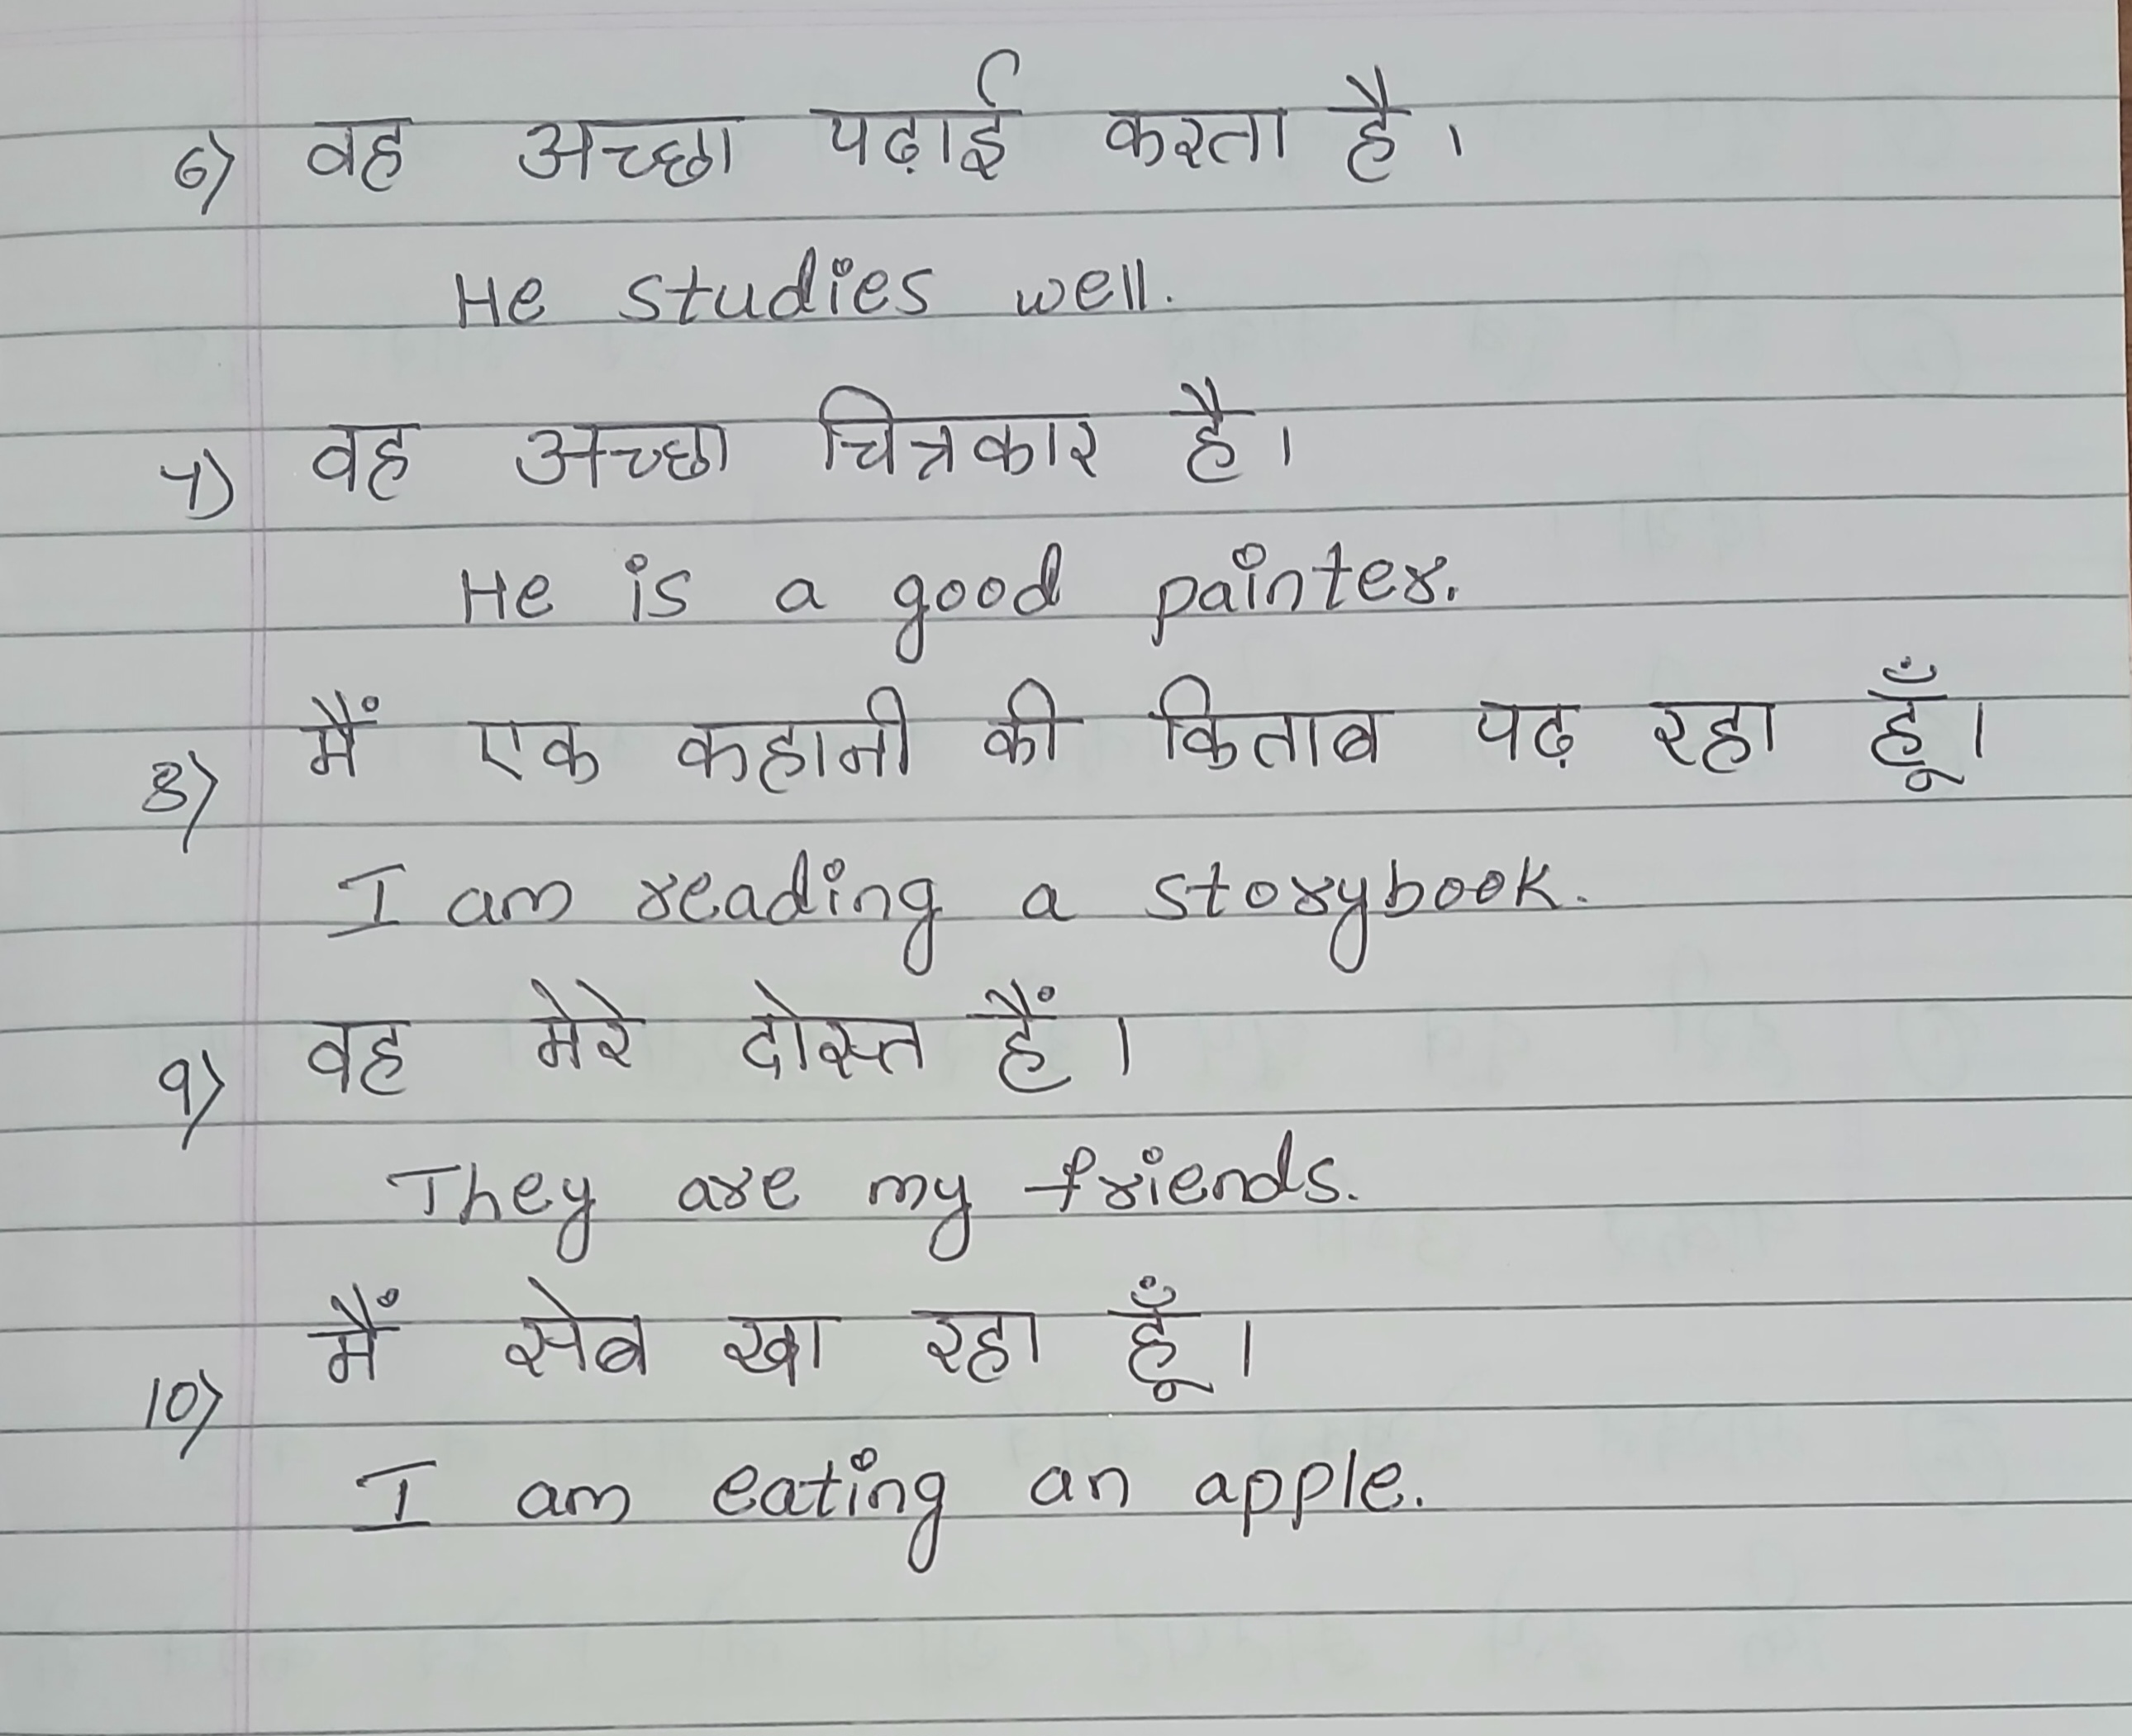 6) वह अच्छा पढ़ाई करता है।
He studies well.
7) वह अच्छा चित्रकार है।
He is a good painter.
8) मैं एक कहानी की किताब पढ़ रहा हूँ।
I am reading a storybook.
9) वह मेरे दोस्त हैं।
They are my friends.
10) मैं सेब खा रहा हूँ।
I am eating an apple.